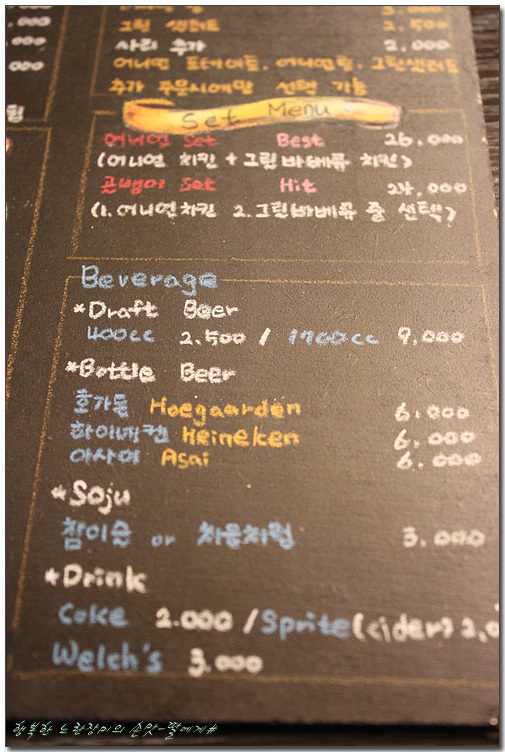 000
000
3,000
그린 샐러드 2,500
사리 추가 2,000
어니언 포테이토, 어니언링, 그린샐러드
추가 주문시에만 선택 가능
Set Menu
어니언 Set Best 26,000
(어니언 치킨 + 그릴바베큐 치킨)
골뱅이 Set Hit 24,000
(1.어니언치킨 2.그릴바베큐 중 선택)
Beverage
*Draft Beer
400cc 2.500 / 1700cc 9,000
*Bottle Beer
호가든 Hoegaarden 6,000
하이네켄 Heineken 6,000
아사이 Asai 6.000
*Soju
참이슬 or 처음처럼 3,000
*Drink
Coke 2.000 / Sprite(cider) 2,0
Welch's 3,000
행복한 느림쟁이의 손맛-딸에게#